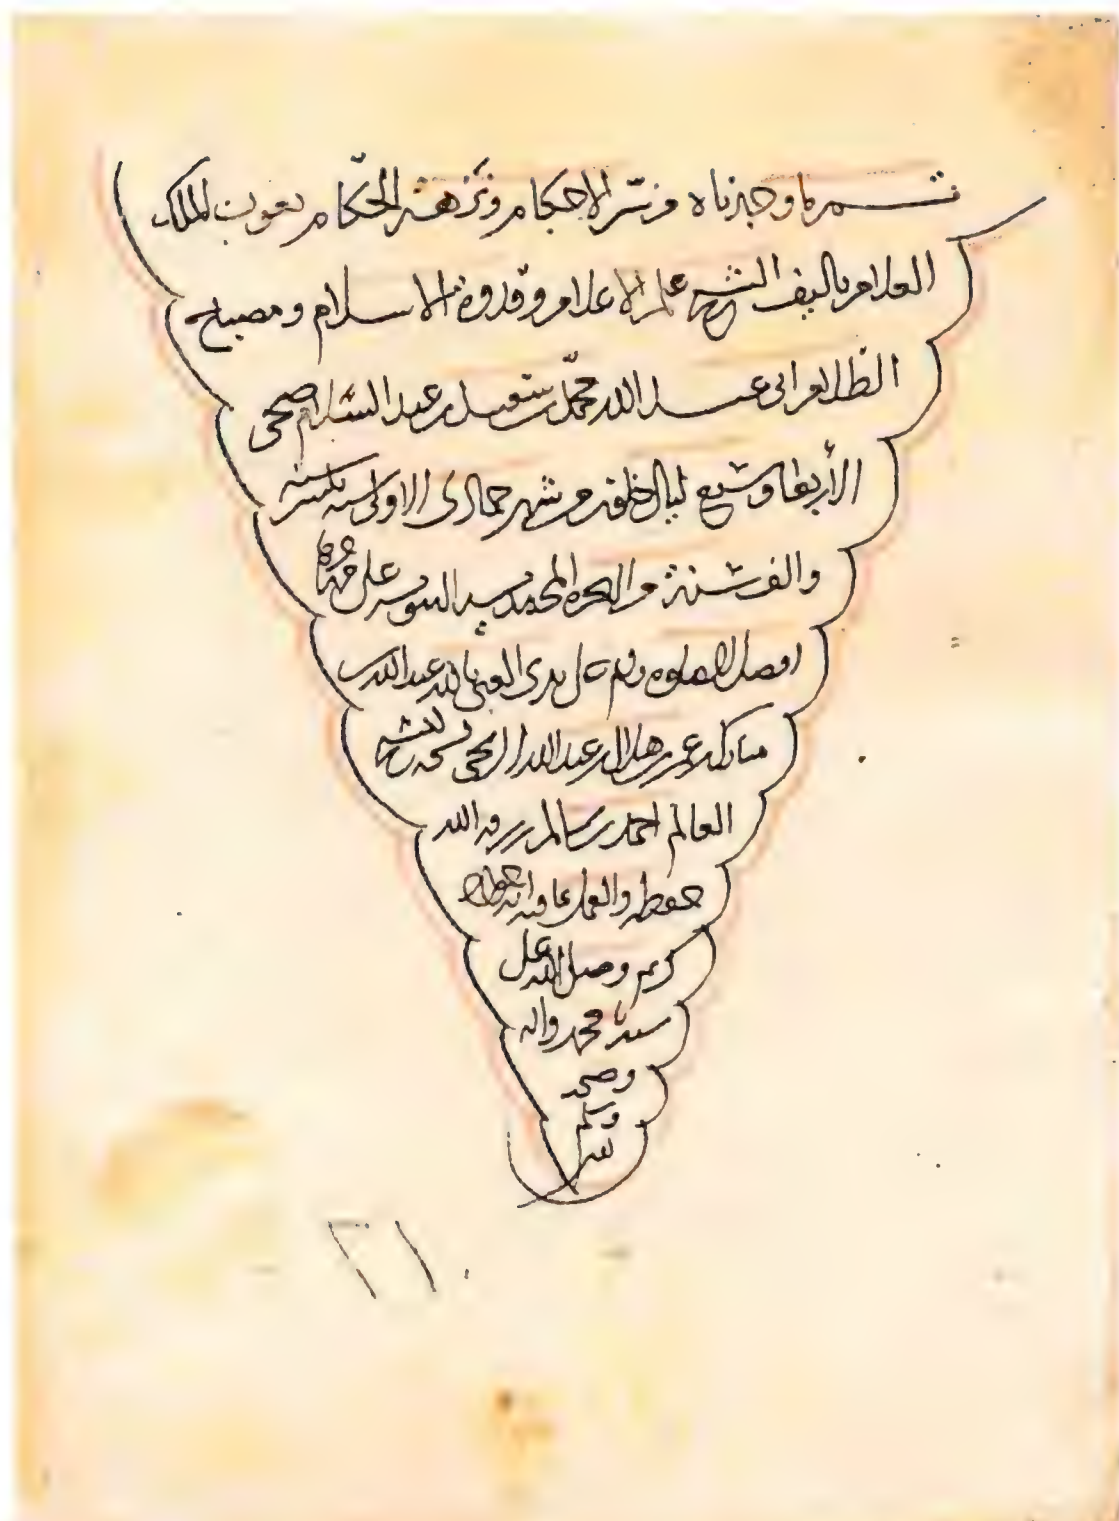 تم ما وجدناه من سر الاحكام ونزهة الحكام بعون الملك
العلام تاليف الشيخ علم الاعلام وقدوة الاسلام ومصباح
الظلام ابى عبد الله محمد بن سعيد بن عبد السلام ضحى
الأربعا وسبع ليال خلت من شهر جمادى الاولى
والف سنة من الهجرة المحمديه النبويه على مهاجرها
افضل الصلوة وتم على يدى الغنى بالله عبد الله بن
مبارك بن عمر بن هلال بن عبد الله الربخى نسخه لشيخه
العالم احمد بن سالم رزقه الله
حفظه والعمل بما فيه انه
كريم وصلى الله على
سيدنا محمد واله
وصحبه
وسلم
لله
٢١